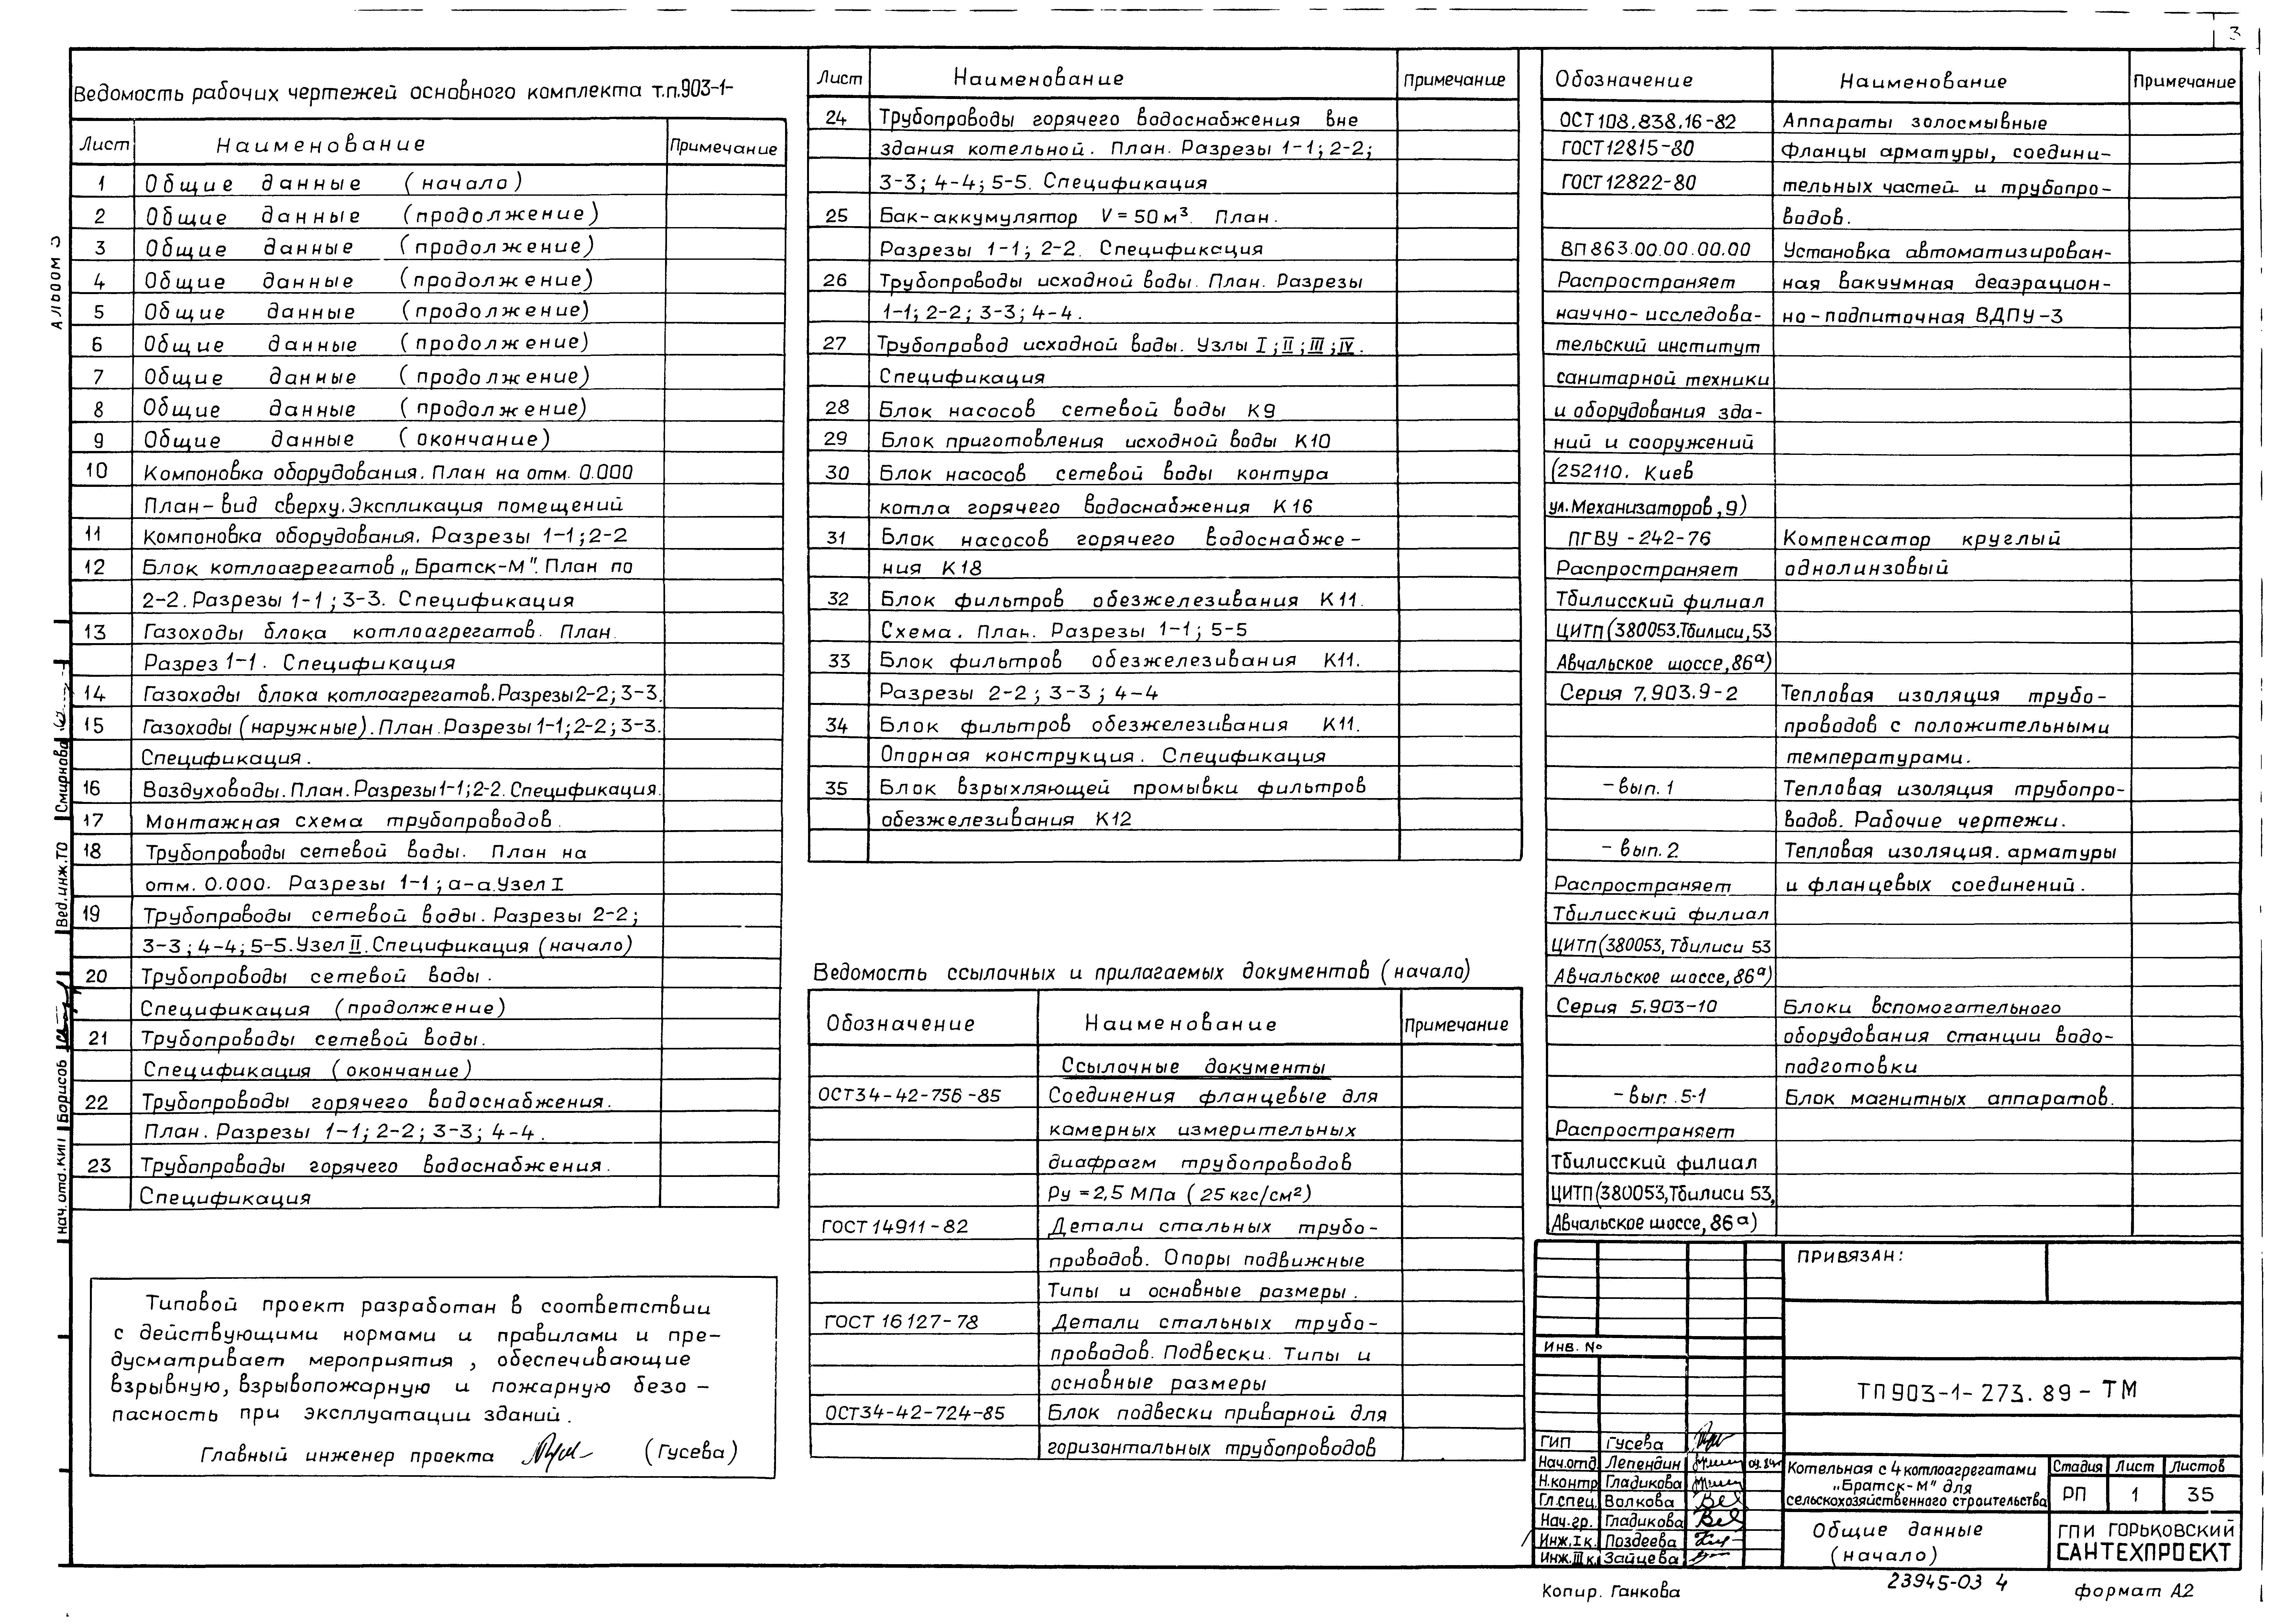 3
Альбом 3
Ведомость рабочих чертежей основного комплекта т.п.903-1-
Лист Наименование Примечание
1 Общие данные (начало)
2 Общие данные (продолжение)
3 Общие данные (продолжение)
4 Общие данные (продолжение)
5 Общие данные (продолжение)
6 Общие данные (продолжение)
7 Общие данные (продолжение)
8 Общие данные (продолжение)
9 Общие данные (окончание)
10 Компоновка оборудования. План на отм. 0.000
План-вид сверху. Экспликация помещений
11 Компоновка оборудования. Разрезы 1-1; 2-2
12 Блок котлоагрегатов „Братск-М". План по
2-2. Разрезы 1-1; 3-3. Спецификация
13 Газоходы блока котлоагрегатов. План.
Разрез 1-1. Спецификация
14 Газоходы блока котлоагрегатов. Разрезы 2-2; 3-3.
15 Газоходы (наружные). План. Разрезы 1-1; 2-2; 3-3.
Спецификация.
16 Воздуховоды. План. Разрезы 1-1; 2-2. Спецификация.
17 Монтажная схема трубопроводов.
18 Трубопроводы сетевой воды. План на
отм. 0.000. Разрезы 1-1; а-а. Узел I
19 Трубопроводы сетевой воды. Разрезы 2-2;
3-3; 4-4; 5-5. Узел II. Спецификация (начало)
20 Трубопроводы сетевой воды.
Спецификация (продолжение)
21 Трубопроводы сетевой воды.
Спецификация (окончание)
22 Трубопроводы горячего водоснабжения.
План. Разрезы 1-1; 2-2; 3-3; 4-4.
23 Трубопроводы горячего водоснабжения.
Спецификация
Типовой проект разработан в соответствии
с действующими нормами и правилами и пре-
дусматривает мероприятия, обеспечивающие
взрывную, взрывопожарную и пожарную безо-
пасность при эксплуатации зданий.
Главный инженер проекта (Гусева)
Нач. отд. КИП Борисов
Вед. инж. ТО Смирнова
Лист Наименование Примечание
24 Трубопроводы горячего водоснабжения вне
здания котельной. План. Разрезы 1-1; 2-2;
3-3; 4-4; 5-5. Спецификация
25 Бак-аккумулятор V=50м³. План.
Разрезы 1-1; 2-2. Спецификация
26 Трубопроводы исходной воды. План. Разрезы
1-1; 2-2; 3-3; 4-4.
27 Трубопровод исходной воды. Узлы I; II; III; IV.
Спецификация
28 Блок насосов сетевой воды К9
29 Блок приготовления исходной воды К10
30 Блок насосов сетевой воды контура
котла горячего водоснабжения К16
31 Блок насосов горячего водоснабже-
ния К18
32 Блок фильтров обезжелезивания К11.
Схема. План. Разрезы 1-1; 5-5
33 Блок фильтров обезжелезивания К11.
Разрезы 2-2; 3-3; 4-4
34 Блок фильтров обезжелезивания К11.
Опорная конструкция. Спецификация
35 Блок взрыхляющей промывки фильтров
обезжелезивания К12
Ведомость ссылочных и прилагаемых документов (начало)
Обозначение Наименование Примечание
Ссылочные документы
ОСТ34-42-756-85 Соединения фланцевые для
камерных измерительных
диафрагм трубопроводов
Ру=2,5 МПа (25 кгс/см²)
ГОСТ 14911-82 Детали стальных трубо-
проводов. Опоры подвижные
Типы и основные размеры.
ГОСТ 16127-78 Детали стальных трубо-
проводов. Подвески. Типы и
основные размеры
ОСТ34-42-724-85 Блок подвески приварной для
горизонтальных трубопроводов
Обозначение Наименование Примечание
ОСТ108.838.16-82 Аппараты золосмывные
ГОСТ12815-80 Фланцы арматуры, соедини-
ГОСТ12822-80 тельных частей и трубопро-
водов.
ВП863.00.00.00.00 Установка автоматизирован-
Распространяет ная вакуумная деаэрацион-
научно-исследова- но-подпиточная ВДПУ-3
тельский институт
санитарной техники
и оборудования зда-
ний и сооружений
(252110. Киев
ул. Механизаторов, 9)
ПГВУ-242-76 Компенсатор круглый
Распространяет однолинзовый
Тбилисский филиал
ЦИТП (380053. Тбилиси, 53
Авчальское шоссе, 86а)
Серия 7.903.9-2 Тепловая изоляция трубо-
проводов с положительными
температурами.
-вып.1 Тепловая изоляция трубопро-
водов. Рабочие чертежи.
-вып.2 Тепловая изоляция. арматуры
Распространяет и фланцевых соединений.
Тбилисский филиал
ЦИТП (380053, Тбилиси 53
Авчальское шоссе, 86а)
Серия 5.903-10 Блоки вспомогательного
оборудования станции водо-
подготовки
-вып. 5-1 Блок магнитных аппаратов.
Распространяет
Тбилисский филиал
ЦИТП (380053, Тбилиси 53,
Авчальское шоссе, 86а)
ПРИВЯЗАН:
Инв. №
ТП903-1-273.89-ТМ
ГИП Гусева
Нач.отд. Лепендин
Н.контр. Гладикова
Гл.спец. Волкова
Нач.гр. Гладикова
Инж.I к. Поздеева
Инж.III к. Зайцева
Котельная с 4 котлоагрегатами
„Братск-М" для
сельскохозяйственного строительства
Стадия Лист Листов
РП 1 35
Общие данные
(начало)
ГПИ ГОРЬКОВСКИЙ
САНТЕХПРОЕКТ
Копир. Ганкова
23945-03 4
формат А2